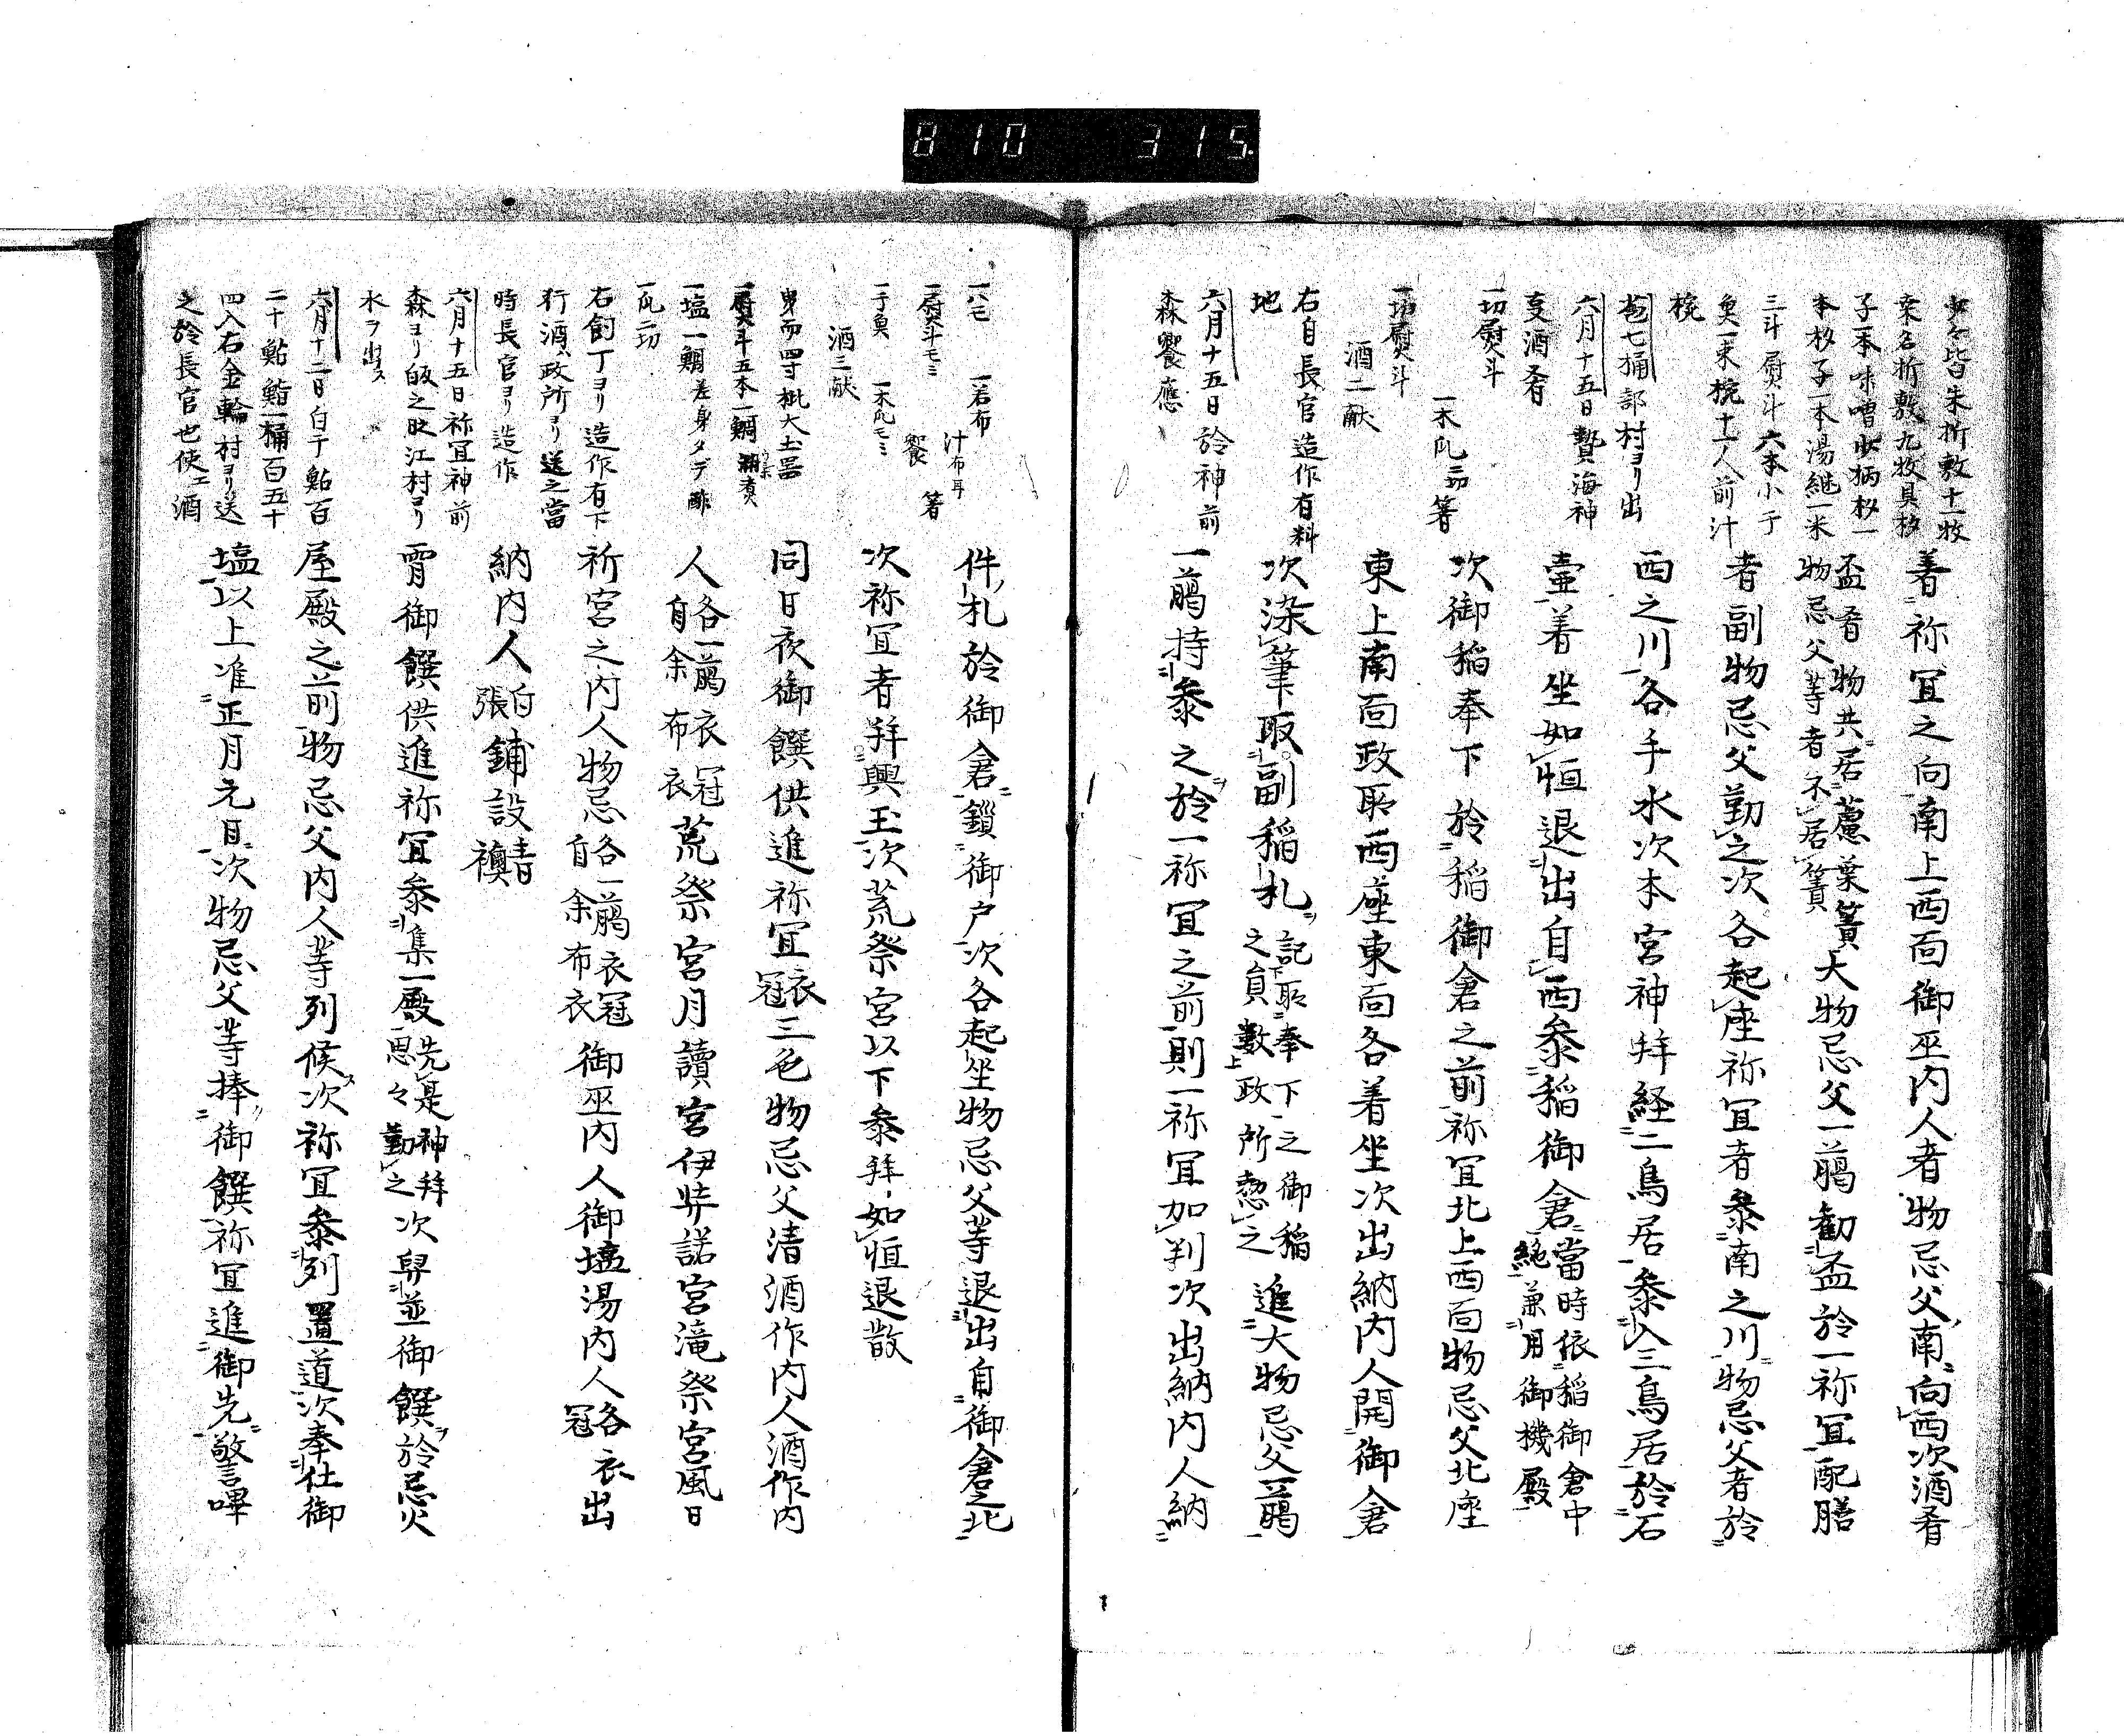 810 315
少々皆朱折敷十一枚
桒名折敷九牧具杉
子一本味噌
本杓子一本湯継一米
三斗熨斗六本小于
奥一束椀十一人前汁
椀
苞七桶部村ヨリ出
六月十五日贄海神
支酒肴
一切熨斗
一木瓜三切箸
一切熨斗
酒二献
右自長官造作有料
地
六月十五日於神前
森饗應
着祢冝之向南上西面御巫内人者物忌父南向西次酒肴
盃肴物共居蕙葉簀大物忌父一﨟勧盃於一祢冝配膳
物忌父等者不居簀
者副物忌父勤之次各起座祢冝者参南之川物忌父者於
西之川各手水次本宮神拜経二鳥居参入三鳥居於石
壷着坐如恒退出自西参稲御倉當時依稲御倉中
絶兼用御機殿
次御稲奉下於稲御倉之前祢冝北上西面物忌父北座
東上南面政所西座東面各着坐次出納内人開御倉
次染筆取副稲札記取奉下之御稲
之員數政所惣之進大物忌父一﨟
一﨟持参之於一祢冝之前則一祢冝加判次出納内人納
一八モ 一若布
一熨斗モミ 汁布耳
一于奥 一木瓜モミ 饗 箸
酒三献
一熨斗五本一鯛
一塩一鯛差身タテ酢
一瓜二切
右飼丁ヨリ造作有下
行酒政所ヨリ送之當
時長官ヨリ造作
六月十五日祢冝神前
森ヨリ飯之时江村ヨリ
水ヲ出ス
六月十二日白于鮎百
二十鮎鮨一桶百五十
四入右金輪村ヨリ送
之於長官也使エ酒
件札於御倉鎖御戸次各起坐物忌父等退出自御倉之北
次祢冝者拜興玉次荒祭宮以下参拜如恒退散
同日夜御饌供進祢冝衣冠三色物忌父清酒作内人酒作内
人各一﨟衣冠
自余布衣荒祭宮月讀宮伊弉諾宮滝祭宮風日
祈宮之内人物忌各一﨟衣冠
自余布衣御巫内人御塩湯内人各衣冠出
納内人白張鋪設青襖
宵御饌供進祢冝参集一殿先是神拜
思々勤之次舁並御饌於忌火
屋殿之前物忌父内人等列候次祢冝参列置道次奉仕御
塩以上准正月元日次物忌父等捧御饌祢冝進御先警嗶